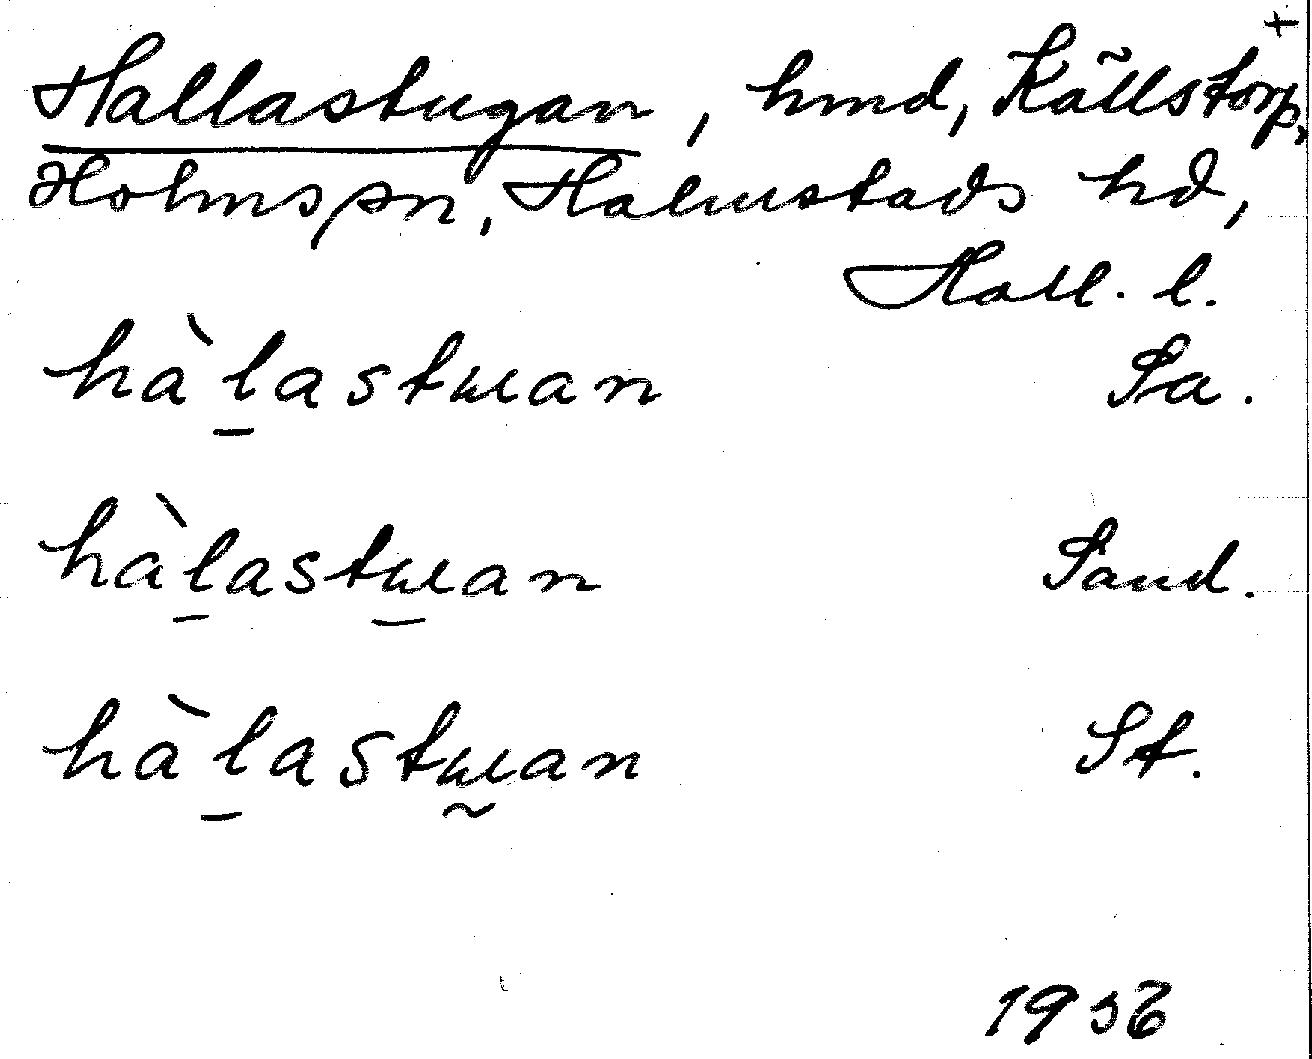 +
Hallastugan, hmd, Källstorp,
Holms sn, Halmstads hd,
Hall. l.
hàlastuan Sa.
hàlastuan Sand.
hàlastuan St.
1936